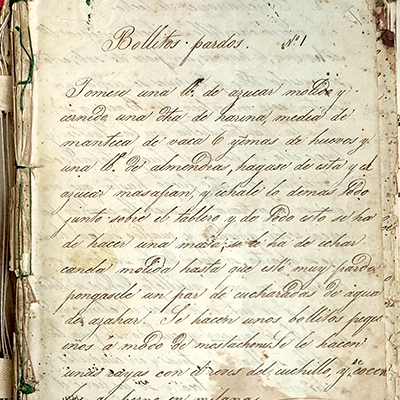 Bollitos pardos. Nº 1
Tomese una lb. de azucar molida y
cernida una dha de harina, media de
manteca de vaca 6 yemas de huevos y
una lb. de almendra, hagase de esta y el
azucar masapan, y echale lo demas todo
junto sobre el tablero y de todo esto se ha
de hacer una masa, se le ha de echar
canela molida hasta que esté muy parda,
pongasele un par de cucharadas de agua
de azahar. Se hacen unos bollitos pequ
eños á modo de mostachones se le hacen
unas rayas con el reves del cuchillo, y se cocen
en el horno en